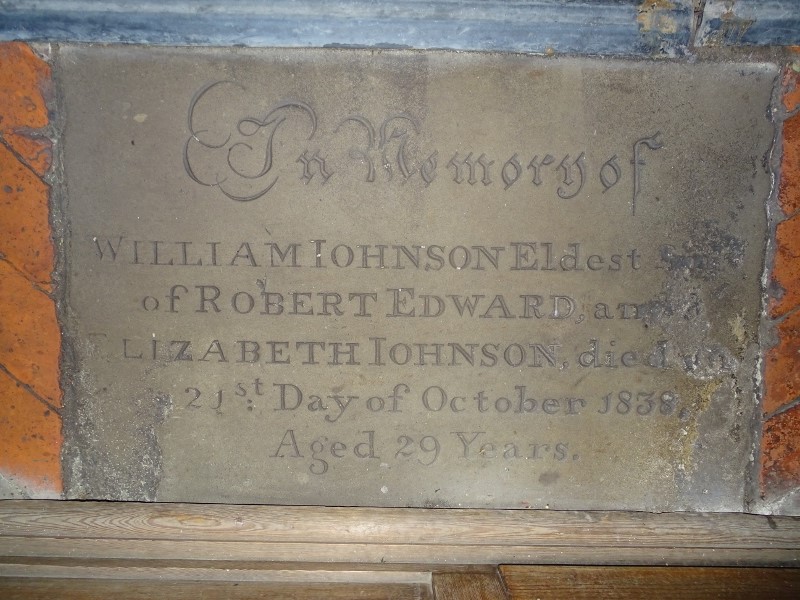 In Memory of
WILLIAM IOHNSON Eldest
of ROBERT EDWARD, and
ELIZABETH IOHNSON, died
21st: Day of October 1838,
Aged 29 Years.